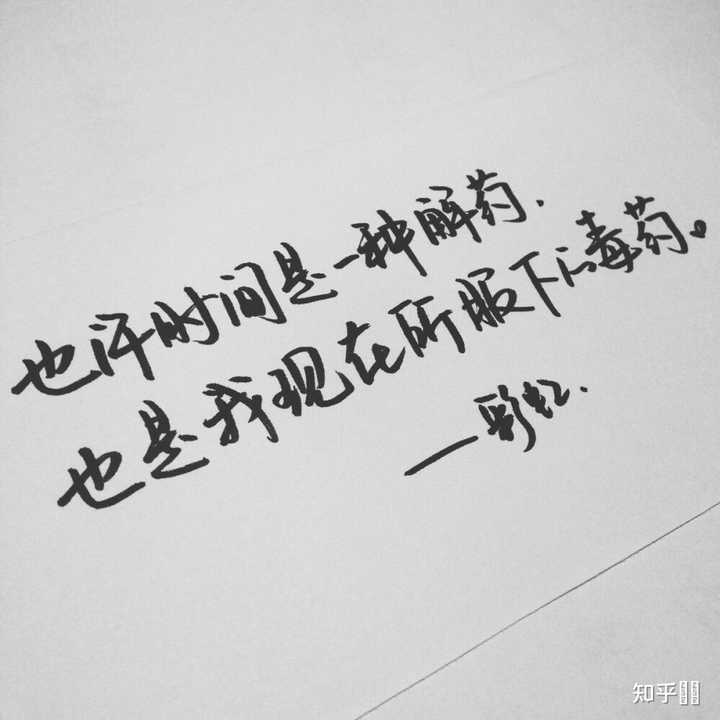 也许时间是一种解药.
也是我现在所服下的毒药。
—彩虹.
知乎